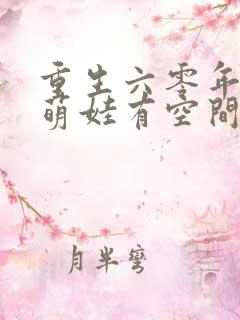 重生六零年
萌娃有空間
月半彎